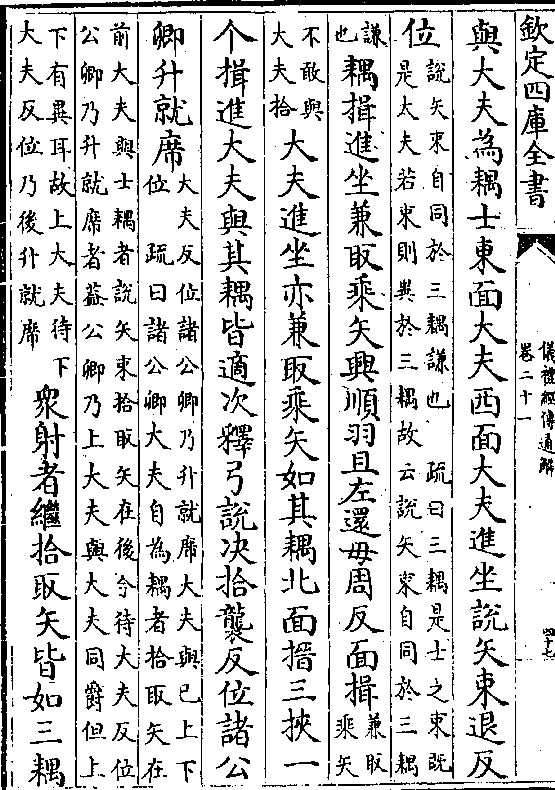 欽定四庫全書
儀禮經傳通解
卷二十一
與大夫為耦士東面大夫西面大夫進坐說矢束退反
位
說矢束自同於三耦謙也 疏曰三耦是士之束既
是大夫若束則異於三耦故云說矢束自同於三耦
謙
也
耦揖進坐兼取乘矢興順羽且左還毋周反面揖
兼取
乘矢
不敢與
大夫拾
大夫進坐亦兼取乘矢如其耦北面搢三挾一
个揖進大夫與其耦皆適次釋弓說决拾襲反位諸公
卿升就席
大夫反位諸公卿乃升就席大夫與已上下
位 疏曰諸公卿大夫自為耦者拾取矢在
前大夫與士耦者說矢束拾取矢在後今待大夫反位
公卿乃升就席者葢公卿乃上大夫與大夫同爵但上
下有異耳故上大夫待下
大夫反位乃後升就席
衆射者繼拾取矢皆如三耦